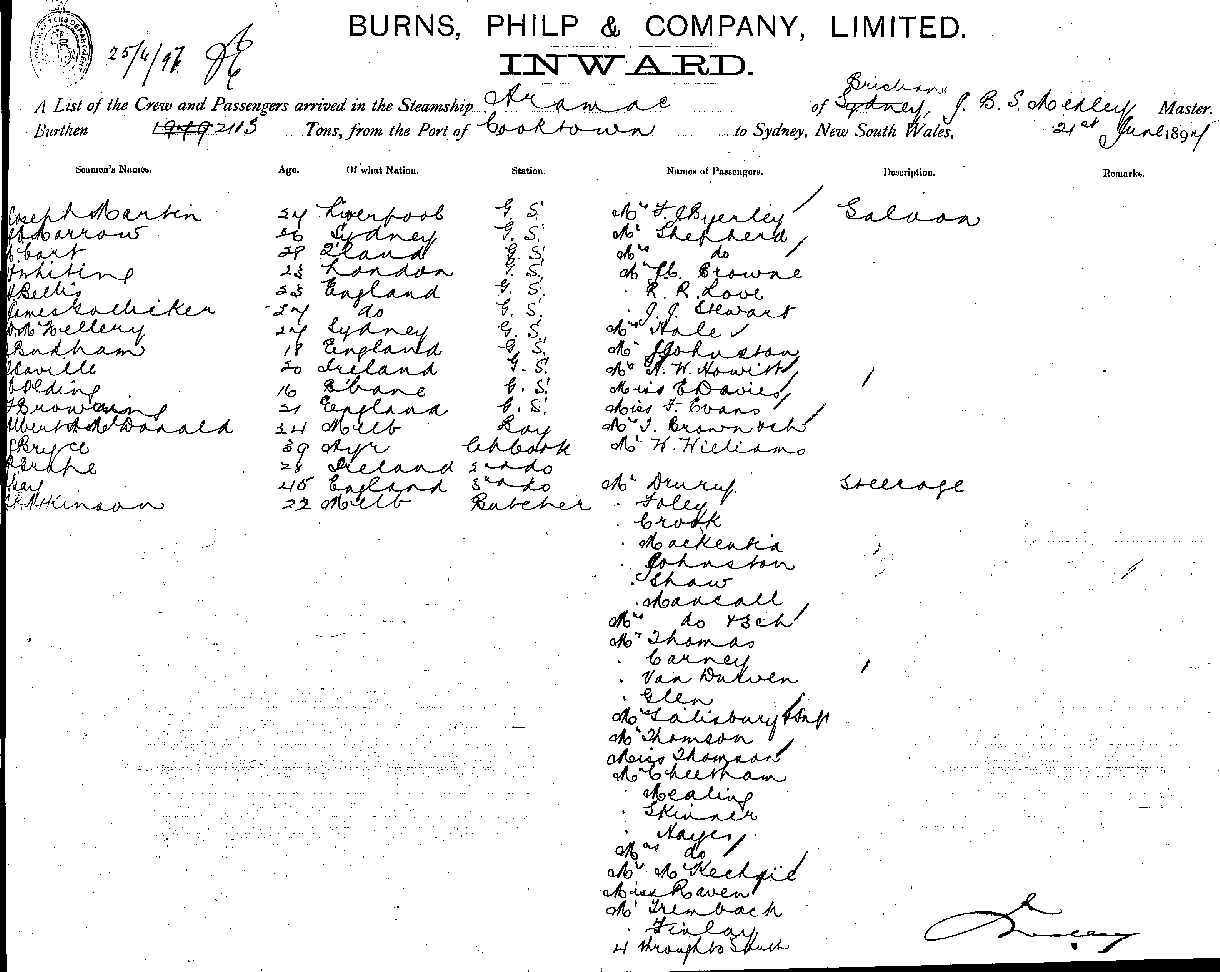 BURNS, PHILP & COMPANY, LIMITED.
25/6/97
INWARD.
Brisbane
A List of the Crew and Passengers arrived in the Steamship Aramac of Sydney, J. B. S. Medley Master.
Burthen 1949 2113 Tons, from the Port of Cooktown to Sydney, New South Wales, 21st June 1897
Seamen's Names. Age. Of what Nation. Station. Names of Passengers. Description. Remarks.
Joseph Martin 24 Liverpool G. S. Mrs F. J Byerley Saloon
Marrow 26 Sydney G. S. Mr Shepherd
Cart 29 Q'land G. S. Mrs do
Whiting 23 London G. S. Mr Browne
Bellis 23 England G. S. R. R. Love
James 27 do G. S. J. J. Stewart
McKellery 24 Sydney G. S. Mrs Hale
Budham 18 England G. S. Mr J Johnston
Saville 20 Ireland G. S. Mr A. W. Howitt
Olding 16 B'bane G. S. Miss E Davies
Browning 21 England G. S. Miss F. Evans
Albert McDonald 34 Melb Boy Mrs T. Brown
Bryce 39 Ayr Ch Cook Mr W. Williams
28 Ireland 2nd do
45 England 3rd do Mr Drury Steerage
Atkinson 22 Melb Butcher Foley
Crook
Mackenzie
Johnston
Shaw
Mancall
Mrs do & 3 ch
Mr Thomas
Carney
Van Durven
Glen
Mrs Salisbury & Inft
Mr Thomson
Miss Thomson
Mr Cheetham
Mealing
Skinner
Hayes
Mrs do
Mr McKechnie
Miss Raven
Mr Trembach
Finlay
4 through to South